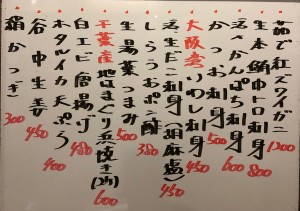 茹で紅ズワイガニ 1200
生本鮪中トロ刺身 800
活〆かんぱち刺身 600
かつお刺身 500
大阪産いわし刺身 450
活生だこ刺身(胡麻塩) 450
しらうおポン酢 380
生湯葉つまみ 500
千葉産地はまぐり浜焼き(2ヶ) 600
白エビ唐揚げ 480
ホタルイカ天ぷら 400
谷中生姜 450
絹かつぎ 300